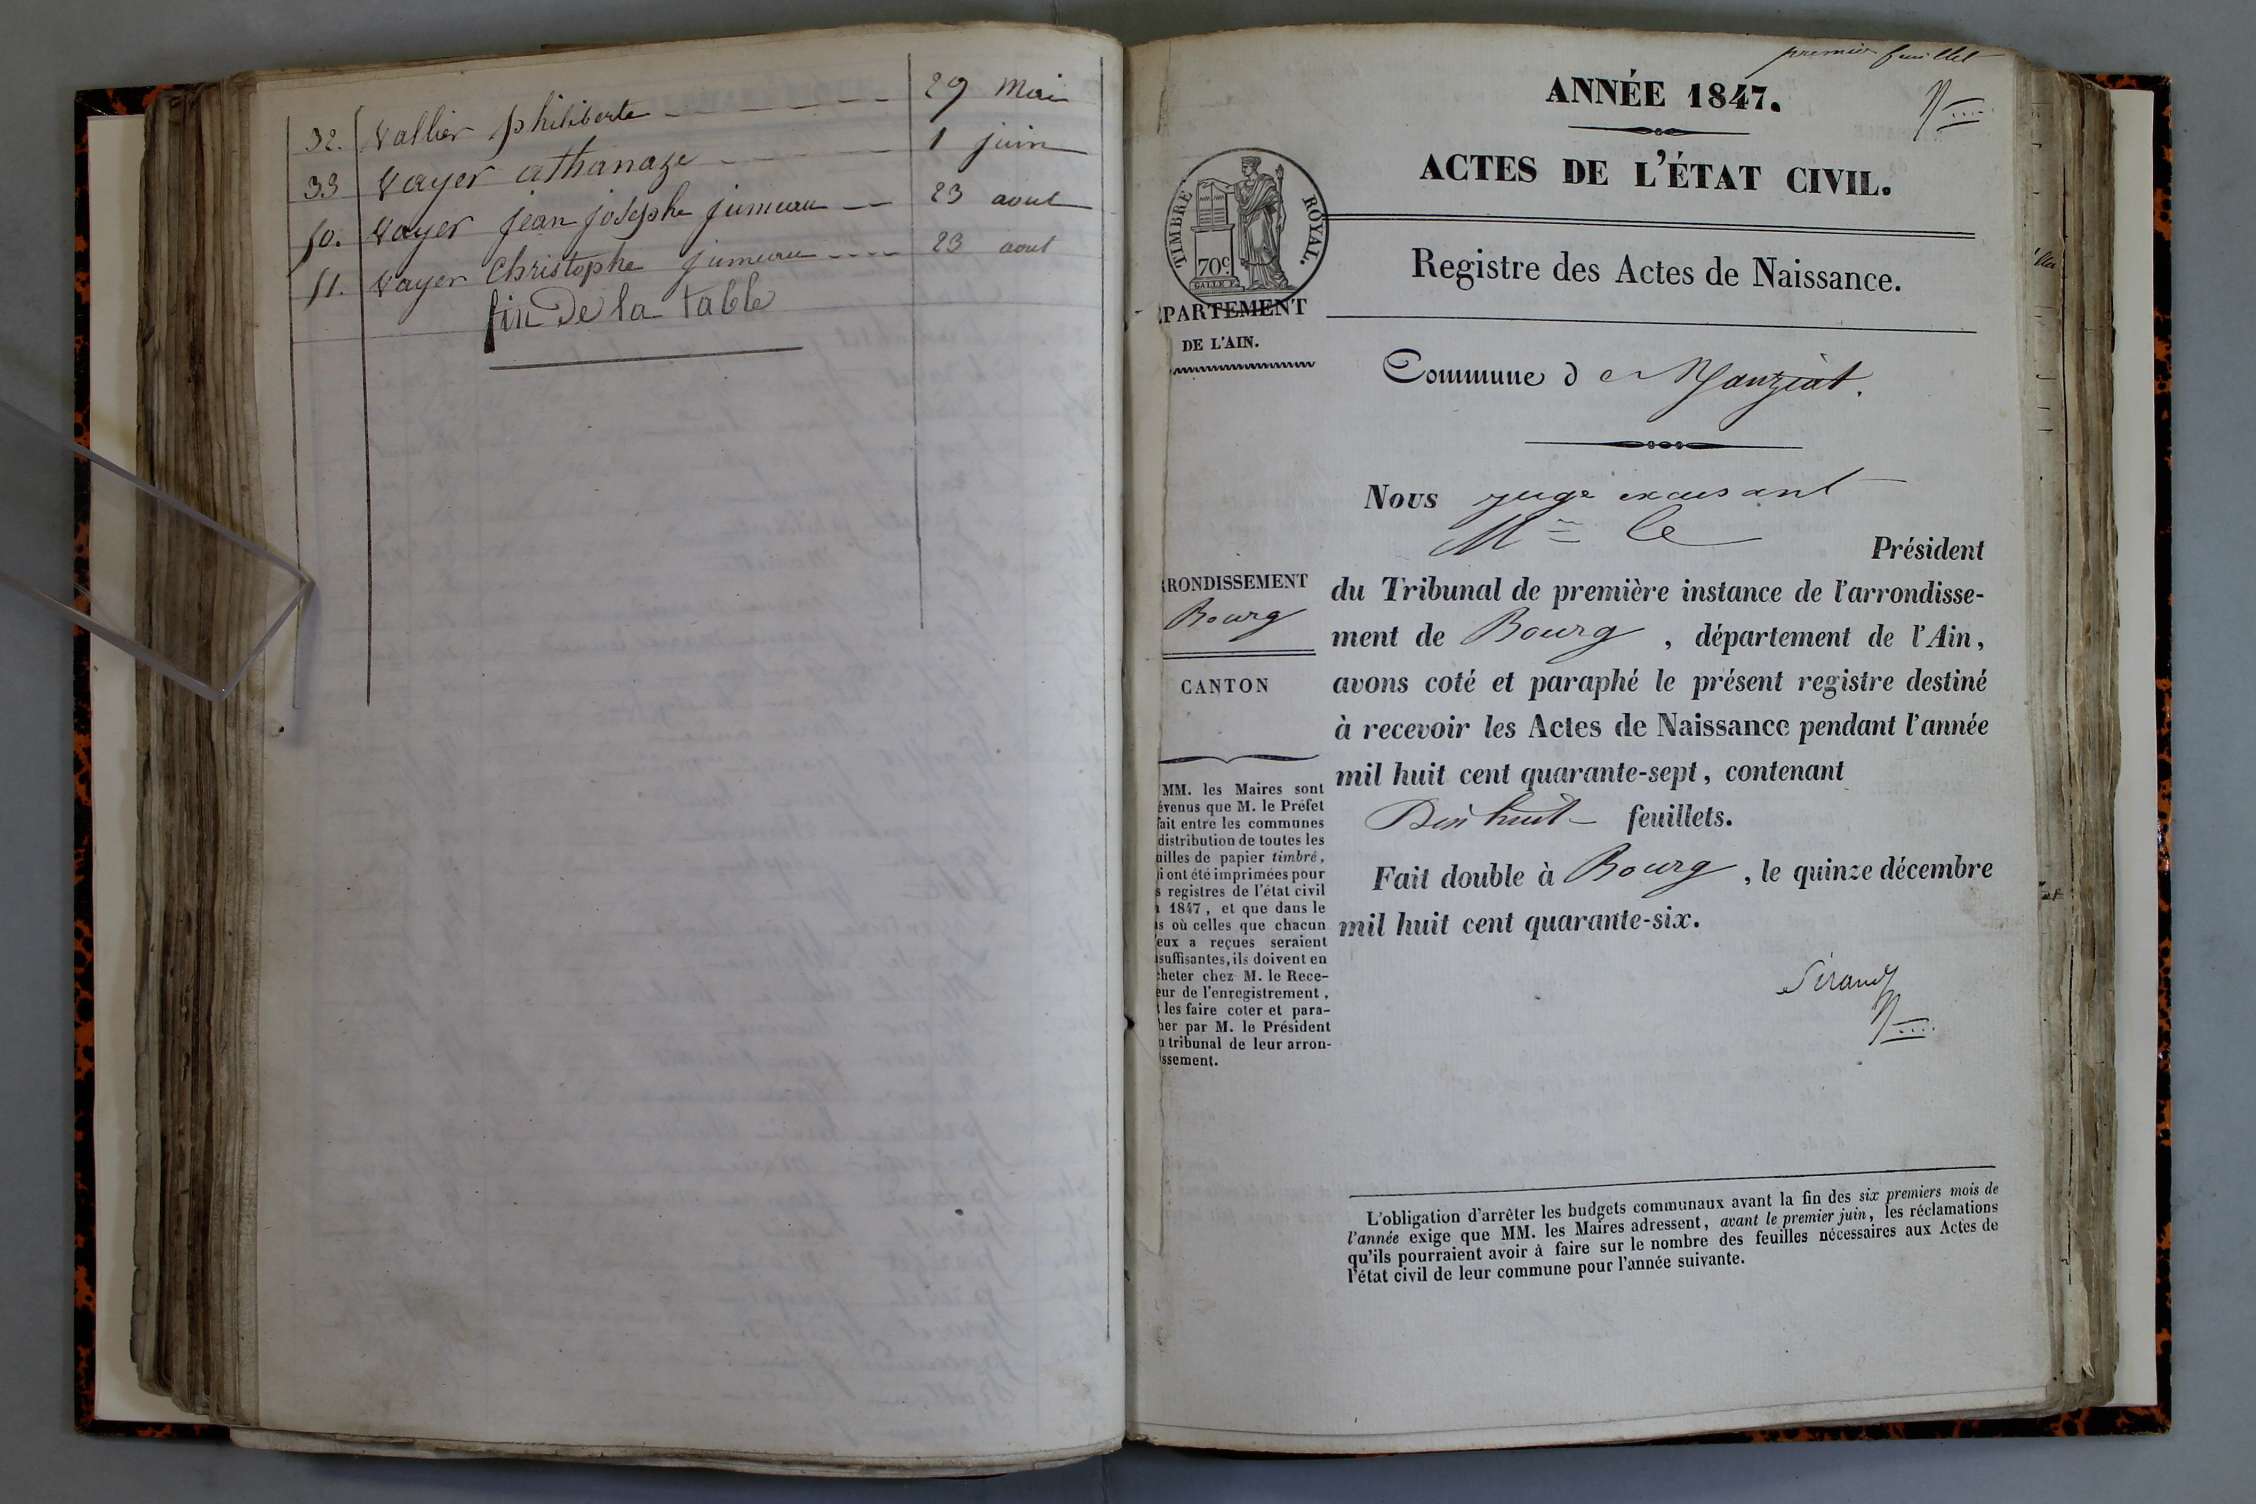 32. Vallier philiberte 29 Mai
33 Vayer athanaze 1 juin
50. Vayer jean josephe jumeau 23 aout
51. Vayer Christophe jumeau 23 aout
fin De la table
premier feuillet
ANNÉE 1847.
ACTES DE L'ÉTAT CIVIL.
TIMBRE ROYAL.
70c.
Registre des Actes de Naissance.
PARTEMENT
DE L'AIN.
Commune de Manziat.
Nous juge excusant
Mr le
Président
du Tribunal de première instance de l'arrondisse-
ment de Bourg, département de l'Ain,
avons coté et paraphé le présent registre destiné
à recevoir les Actes de Naissance pendant l'année
mil huit cent quarante-sept, contenant
Dix huit feuillets.
Fait double à Bourg, le quinze décembre
mil huit cent quarante-six.
RONDISSEMENT
Bourg
CANTON
MM. les Maires sont
évenus que M. le Préfet
fait entre les communes
distribution de toutes les
uilles de papier timbré,
i ont été imprimées pour
s registres de l'état civil
1847, et que dans le
s où celles que chacun
eux a reçues seraient
suffisantes, ils doivent en
cheter chez M. le Rece-
eur de l'enregistrement,
les faire coter et para-
her par M. le Président
u tribunal de leur arron-
ssement.
L'obligation d'arrêter les budgets communaux avant la fin des six premiers mois de
l'année exige que MM. les Maires adressent, avant le premier juin, les réclamations
qu'ils pourraient avoir à faire sur le nombre des feuilles nécessaires aux Actes de
l'état civil de leur commune pour l'année suivante.